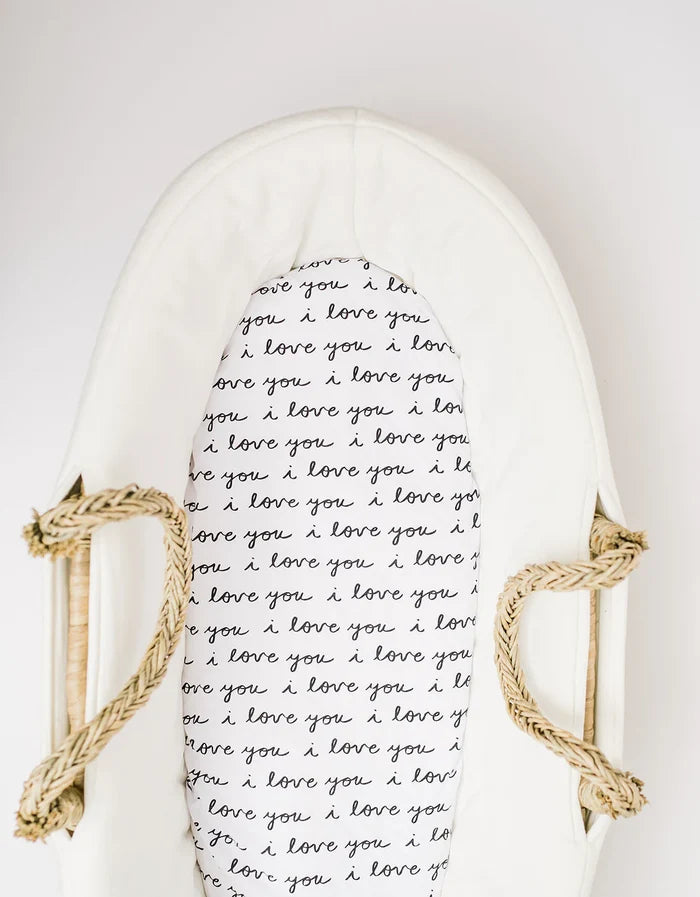 love y
love you i lov
you i love you
i love you i love
love you i love you
you i love you i lov
i love you i love you
ve you i love you i lo
i love you i love you
love you i love you i l
you i love you i love y
i love you i love you i
e you i love you i love
i love you i love you
love you i love you i lo
ou i love you i love y
love you i love you i
you i love you i love
love you i love you
e yo i love you i lo
i love you i love yo
e y